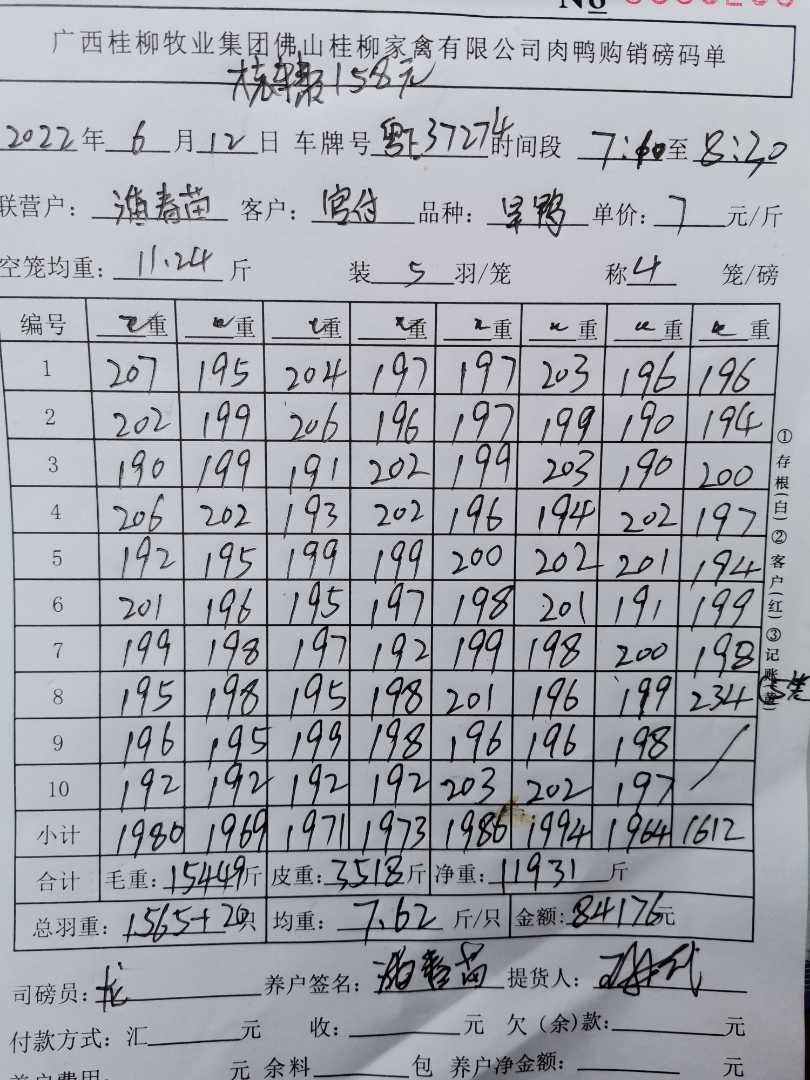 广西桂柳牧业集团佛山桂柳家禽有限公司肉鸭购销磅码单
158元
2022年 6 月 12 日 车牌号 37274 时间段 至 8:20
联营户: 春苗 客户: 官付 品种: 旱鸭 单价: 7 元/斤
空笼均重: 11.24 斤 装 5 羽/笼 称 4 笼/磅
编号 重 重 重 重 重 重 重 重
1 207 195 204 197 197 203 196 196
2 202 199 206 196 197 199 190 194
3 190 199 191 202 199 203 190 200
4 206 202 193 202 196 194 202 197
5 192 195 199 199 200 202 201 194
6 201 196 195 197 198 201 191 199
7 199 198 197 192 199 198 200 198
8 195 198 195 198 201 196 199 234
9 196 195 199 198 196 196 198
10 192 192 192 192 203 202 197
小计 1980 1969 1971 1973 1986 1994 1964 1612
合计 毛重: 15449 斤 皮重: 3518 斤 净重: 11931 斤
总羽重: 1565+20 只 均重: 7.62 斤/只 金额: 84176 元
司磅员: 龙 养户签名: 春苗 提货人:
付款方式: 汇 元 收: 元 欠(余)款: 元
养户费用: 元 余料 包 养户净金额: 元
①存根(白)②客户(红)③记账